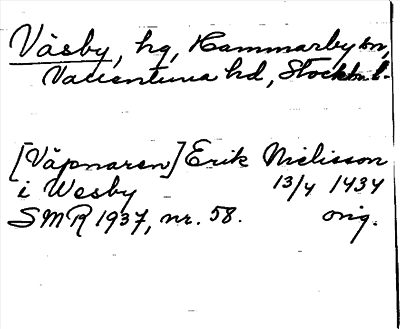 Väsby, hg, Hammarby sn,
Vallentuna hd, Stockhm l.
[Väpnaren] Erik Nielisson
i Wesby 13/4 1434
SMR 1937, nr. 58. orig.